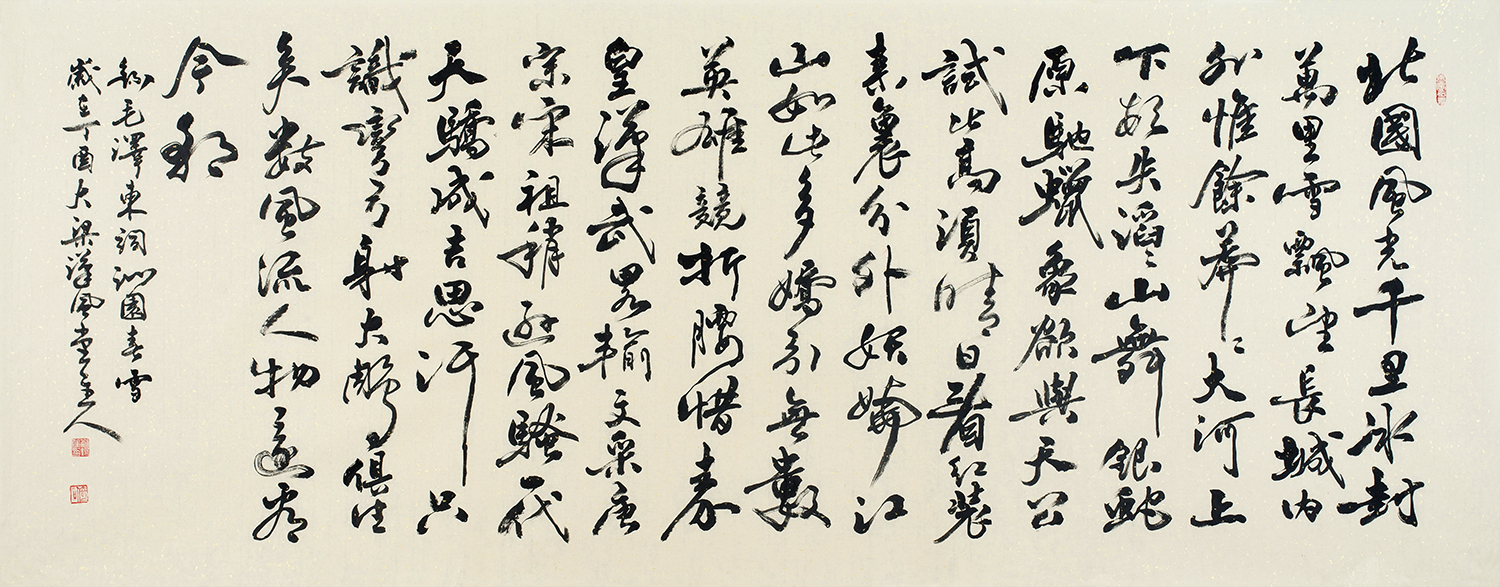 北國風光千里冰封
萬里雪飄望長城内
外惟餘莽〻大河上
下頓失滔〻山舞銀蛇
原馳蠟象欲與天公
試比高須晴日看紅裝
素裹分外妖嬈江
山如此多嬌引無數
英雄競折腰惜秦
皇漢武畧輸文采唐
宗宋祖稍遜風騷一代
天驕成吉思汗只
識彎弓射大鵰俱往
矣數風流人物還看
今朝
錄毛澤東詞沁園春雪
歲在丁酉大梁漢風堂主人